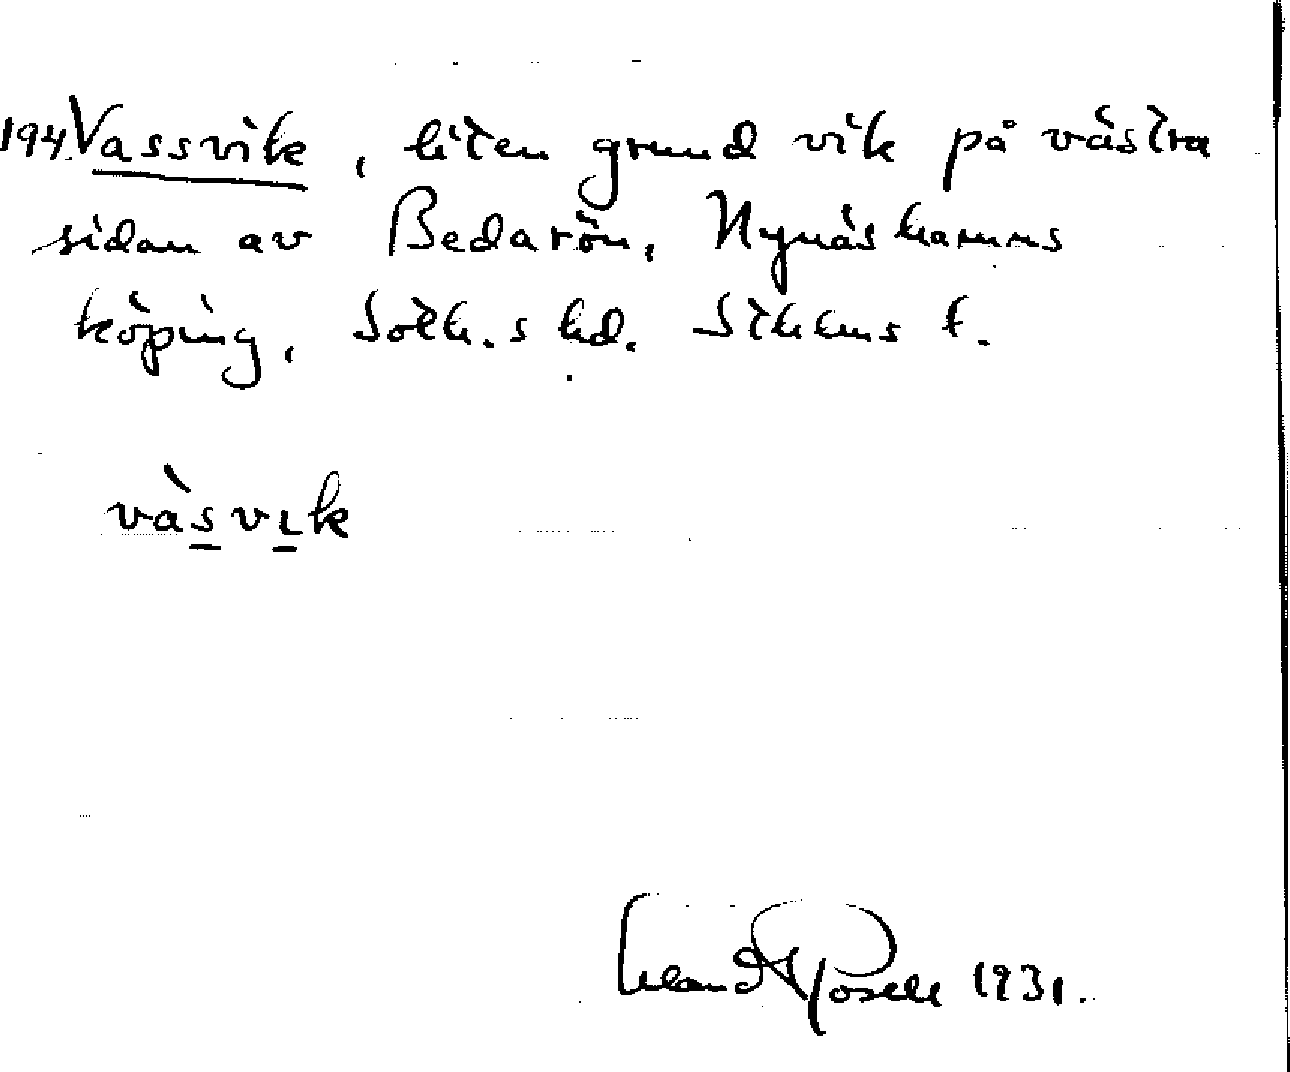 194. Vassvik, liten grund vik på västra
sidan av Bedarön, Nynäshamns
köping, Soth.s hd. Sthlms l.
vàsvık
1931.